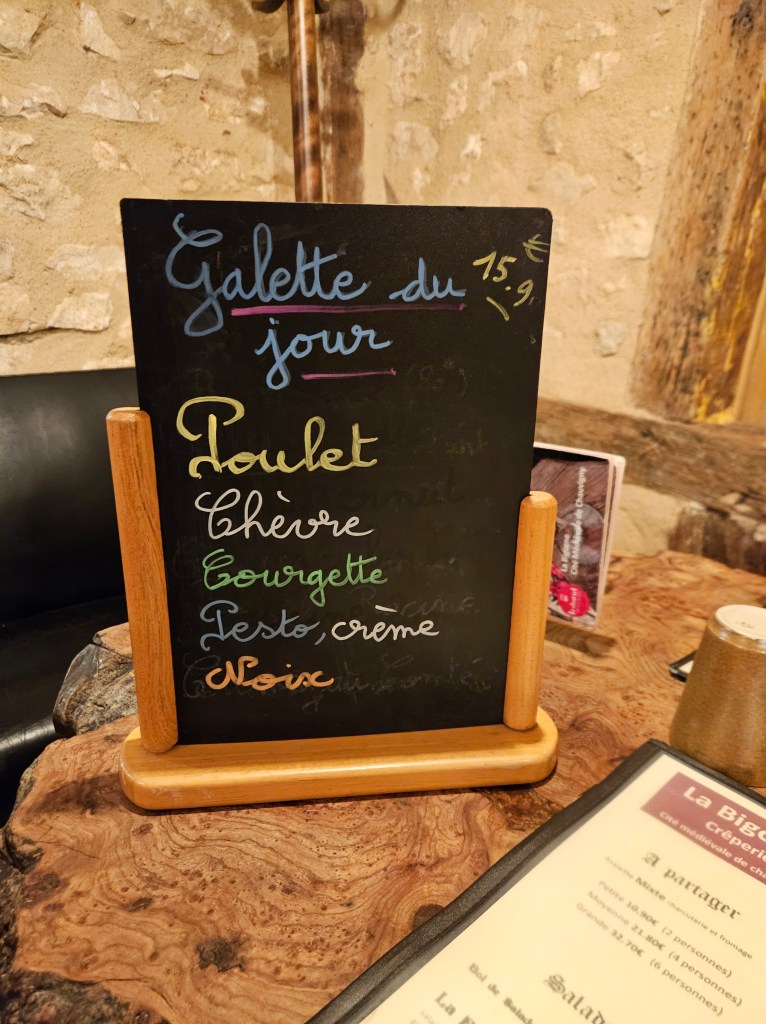 Galette du
jour
15.9
€
Poulet
Chèvre
Courgette
Pesto, crème
Noix
La
Cité Médiévale de Chauvigny
La
Crêperie
Cité médiévale de
A partager
Assiette Mixte charcuterie et fromage
Petite 10.90€ (2 personnes)
Moyenne 21.80€ (4 personnes)
Grande 32.70€ (6 personnes)
Bol de
La